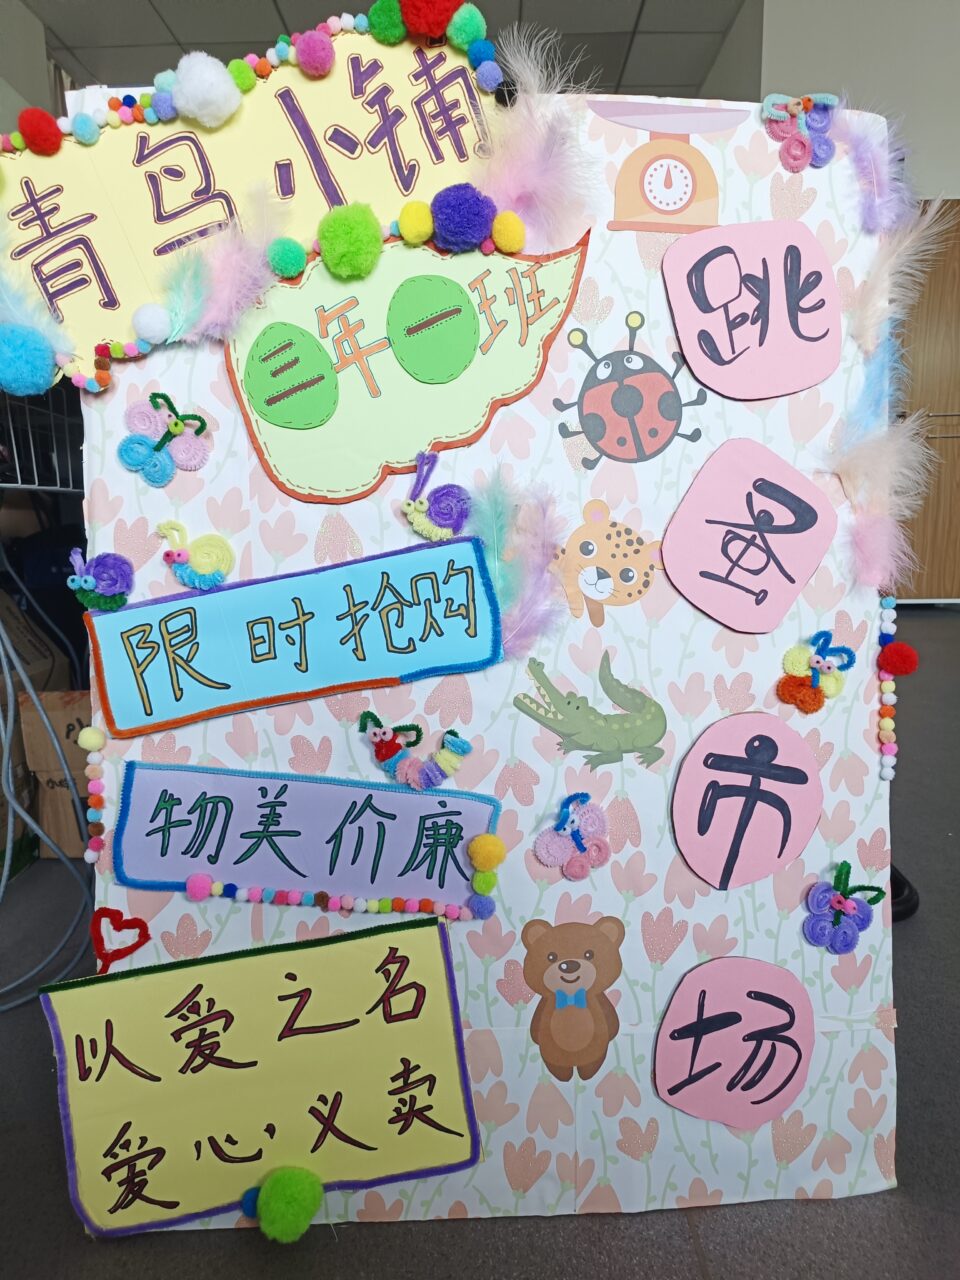 青鸟小铺
三年一班
跳蚤市场
限时抢购
物美价廉
以爱之名
爱心义卖